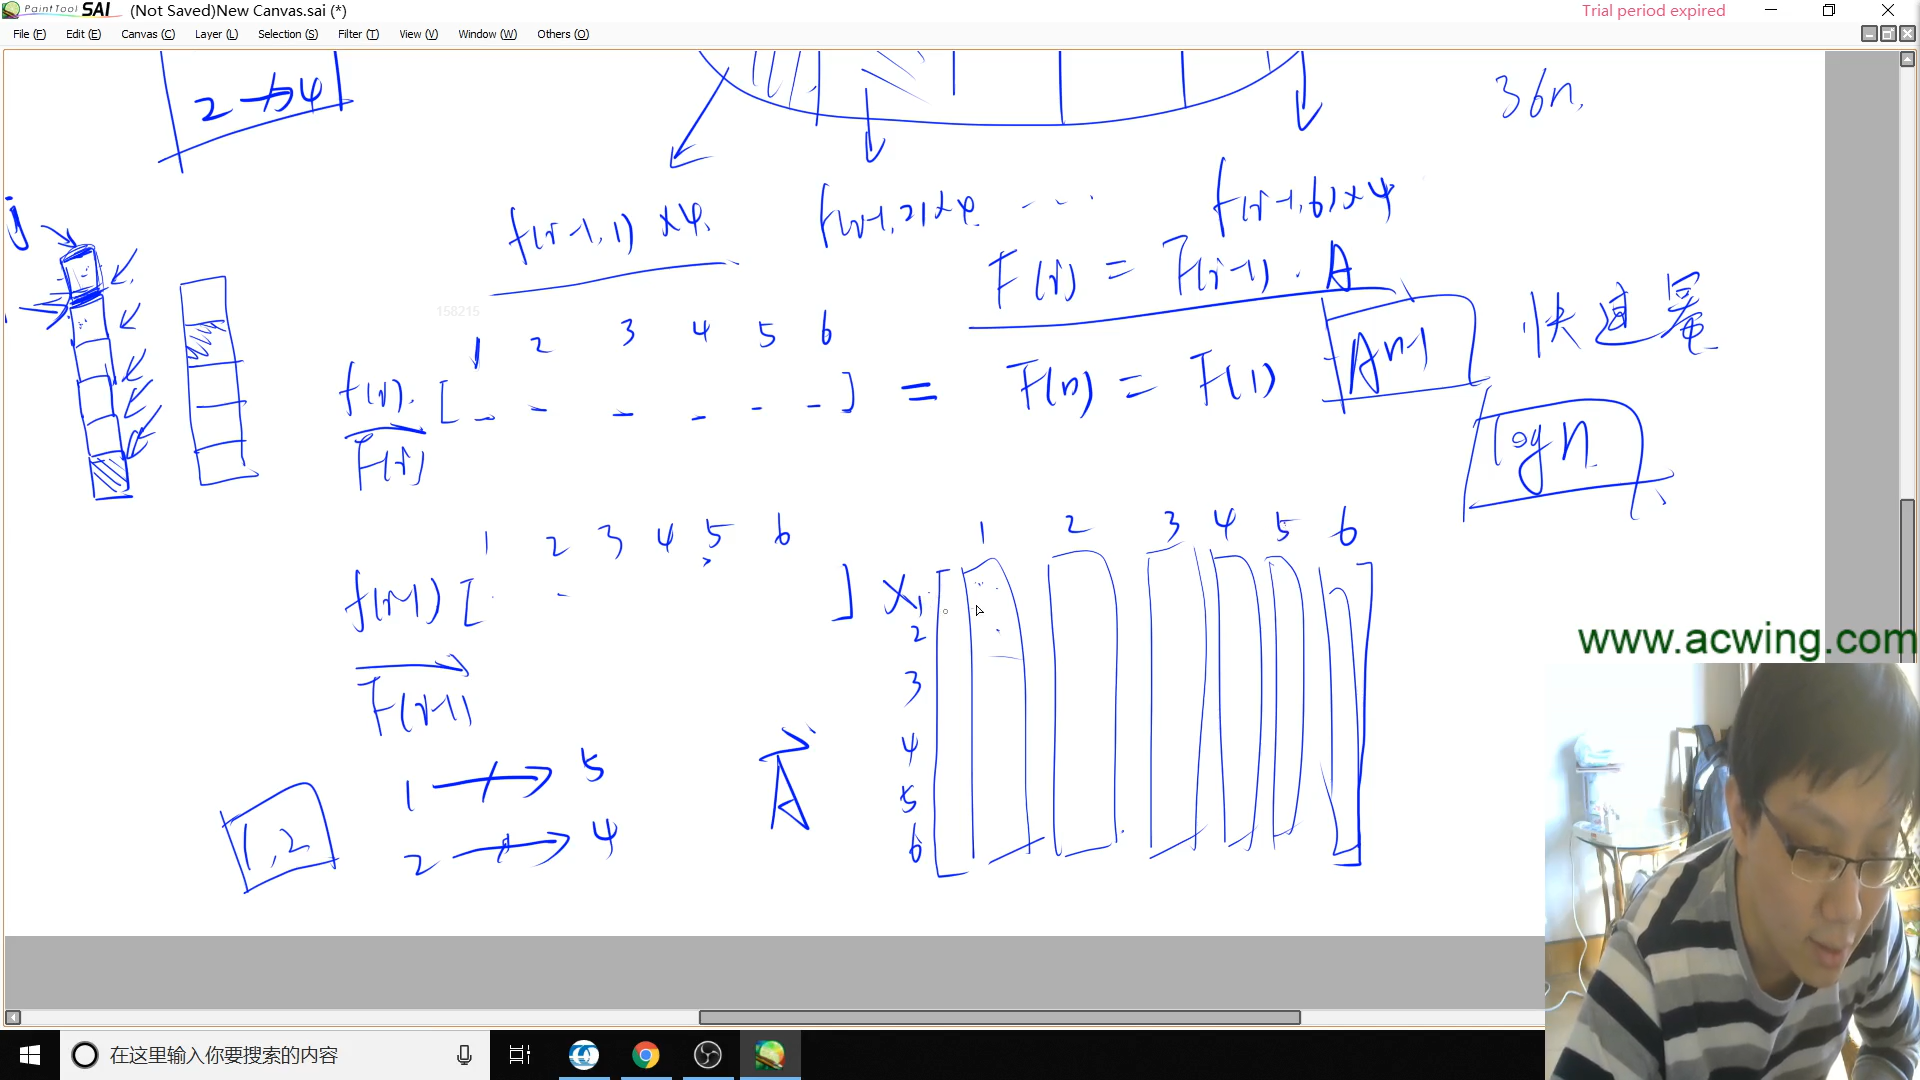 PaintTool SAI (Not Saved)New Canvas.sai (*) Trial period expired
File (F) Edit (E) Canvas (C) Layer (L) Selection (S) Filter (T) View (V) Window (W) Others (O)
2 → 4
36n.
j
f(i-1,1) ×4. f(i-1,2)×4. ... f(i-1,6)×4
F(i) = F(i-1) · A
158215
1 2 3 4 5 6
快速幂
f(i). [ - - - - - - ] = F(n) = F(1) Aⁿ⁻¹
F(i)
log n
1 2 3 4 5 6 1 2 3 4 5 6
f(i-1) [ ] × 1
2
3
4
5
6
F(i-1)
A
1 → 5
2 → 4
1,2
www.acwing.com
在这里输入你要搜索的内容